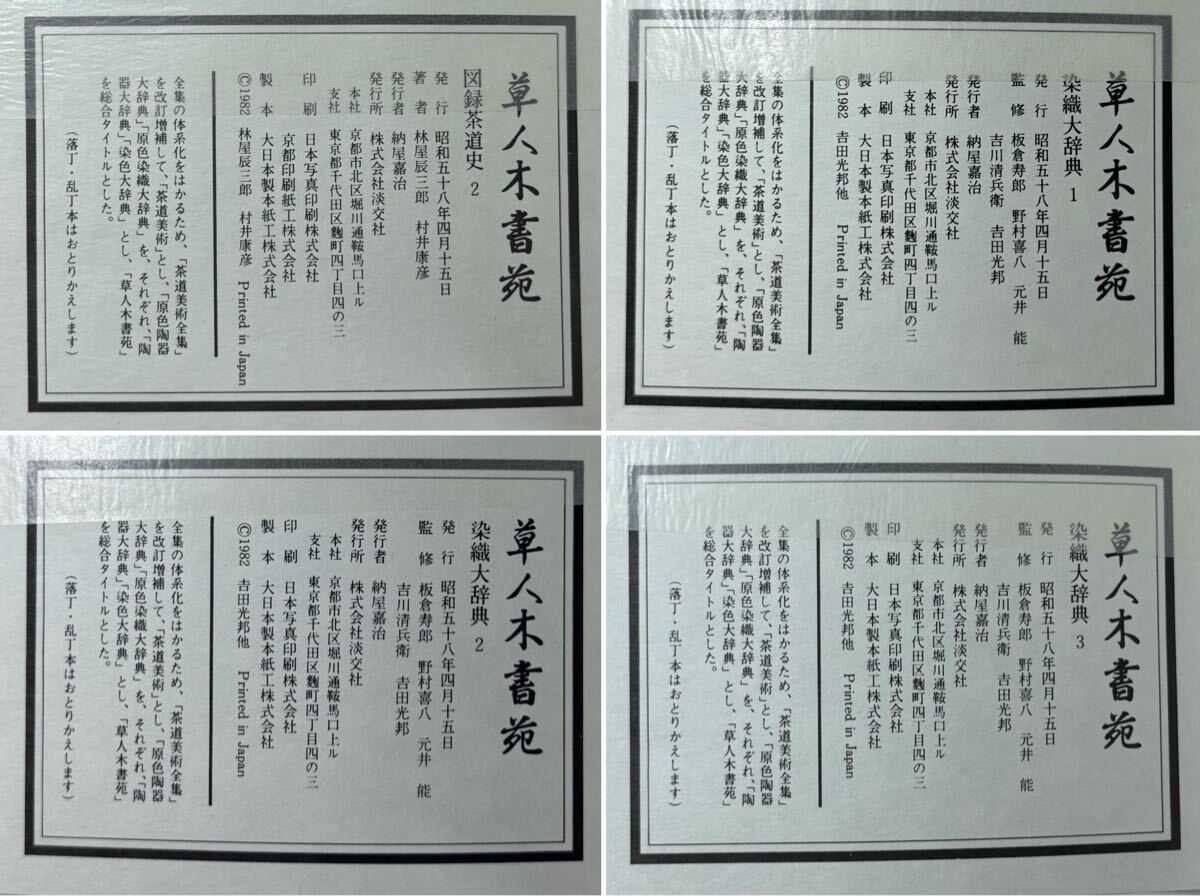 草人木書苑
図録茶道史 2
発行 昭和五十八年四月十五日
著者 林屋辰三郎 村井康彦
発行者 納屋嘉治
発行所 株式会社淡交社
本社 京都市北区堀川通鞍馬口上ル
支社 東京都千代田区麴町四丁目四の三
印刷 日本写真印刷株式会社
京都印刷紙工株式会社
製本 大日本製本紙工株式会社
©1982 林屋辰三郎 村井康彦 Printed in Japan
全集の体系化をはかるため、「茶道美術全集」
を改訂増補して、「茶道美術」とし、「原色陶器
大辞典」「原色染織大辞典」を、それぞれ、「陶
器大辞典」「染色大辞典」とし、「草人木書苑」
を総合タイトルとした。
(落丁・乱丁本はおとりかえします)
草人木書苑
染織大辞典 1
発行 昭和五十八年四月十五日
監修 板倉寿郎 野村喜八 元井 能
吉川清兵衛 吉田光邦
発行者 納屋嘉治
発行所 株式会社淡交社
本社 京都市北区堀川通鞍馬口上ル
支社 東京都千代田区麴町四丁目四の三
印刷 日本写真印刷株式会社
製本 大日本製本紙工株式会社
©1982 吉田光邦他 Printed in Japan
全集の体系化をはかるため、「茶道美術全集」
を改訂増補して、「茶道美術」とし、「原色陶器
大辞典」「原色染織大辞典」を、それぞれ、「陶
器大辞典」「染色大辞典」とし、「草人木書苑」
を総合タイトルとした。
(落丁・乱丁本はおとりかえします)
草人木書苑
染織大辞典 2
発行 昭和五十八年四月十五日
監修 板倉寿郎 野村喜八 元井 能
吉川清兵衛 吉田光邦
発行者 納屋嘉治
発行所 株式会社淡交社
本社 京都市北区堀川通鞍馬口上ル
支社 東京都千代田区麴町四丁目四の三
印刷 日本写真印刷株式会社
製本 大日本製本紙工株式会社
©1982 吉田光邦他 Printed in Japan
全集の体系化をはかるため、「茶道美術全集」
を改訂増補して、「茶道美術」とし、「原色陶器
大辞典」「原色染織大辞典」を、それぞれ、「陶
器大辞典」「染色大辞典」とし、「草人木書苑」
を総合タイトルとした。
(落丁・乱丁本はおとりかえします)
草人木書苑
染織大辞典 3
発行 昭和五十八年四月十五日
監修 板倉寿郎 野村喜八 元井 能
吉川清兵衛 吉田光邦
発行者 納屋嘉治
発行所 株式会社淡交社
本社 京都市北区堀川通鞍馬口上ル
支社 東京都千代田区麴町四丁目四の三
印刷 日本写真印刷株式会社
製本 大日本製本紙工株式会社
©1982 吉田光邦他 Printed in Japan
全集の体系化をはかるため、「茶道美術全集」
を改訂増補して、「茶道美術」とし、「原色陶器
大辞典」「原色染織大辞典」を、それぞれ、「陶
器大辞典」「染色大辞典」とし、「草人木書苑」
を総合タイトルとした。
(落丁・乱丁本はおとりかえします)